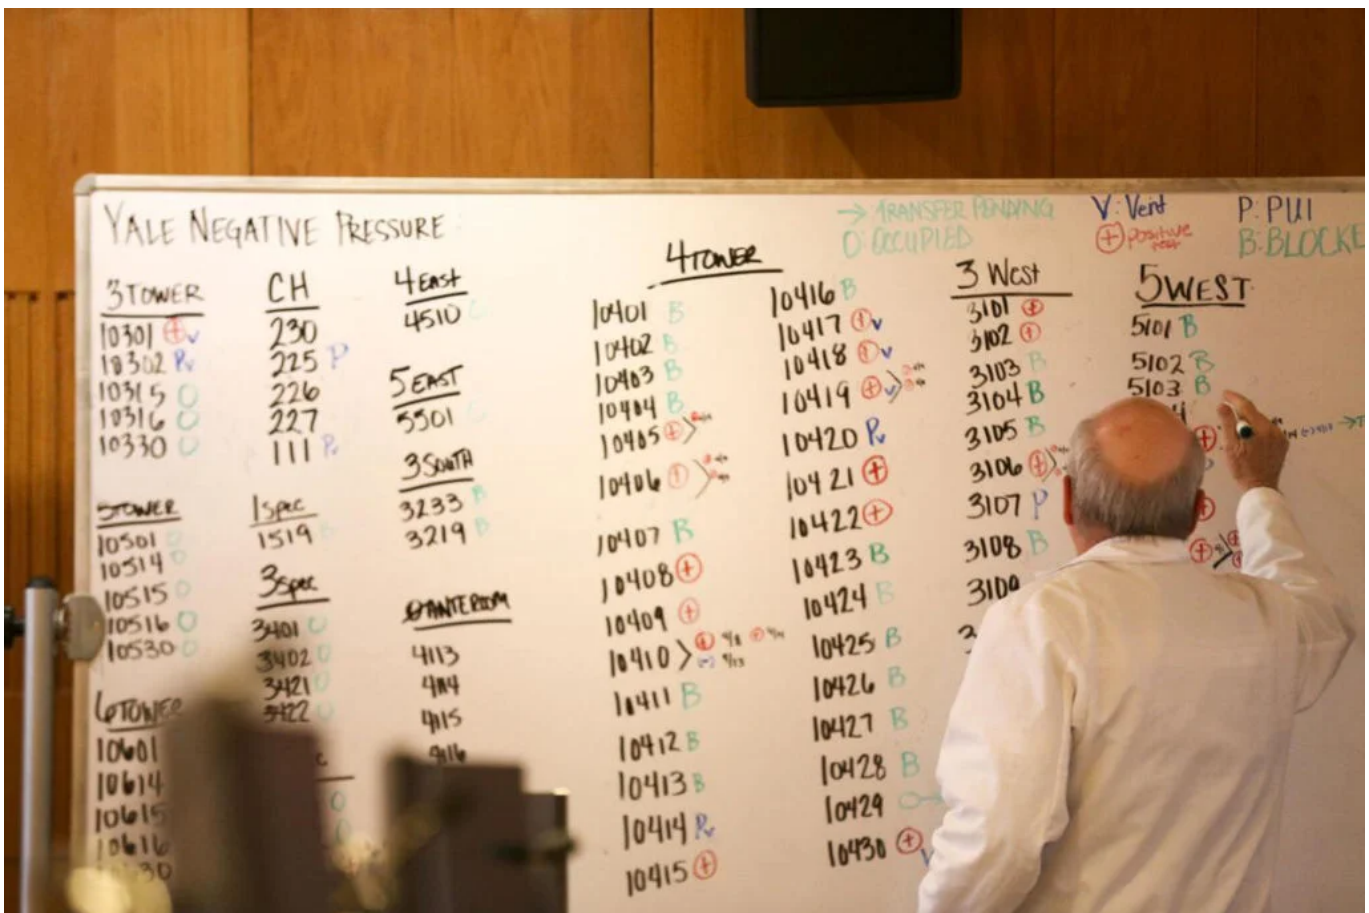 YALE NEGATIVE PRESSURE
→ TRANSFER PENDING
O: OCCUPIED
V: Vent
⊕ positive test
P: PUI
B: BLOCKE
3 TOWER
10301 ⊕ V
10302 Pv
10315 O
10316 O
10330 O
5 TOWER
10501 O
10514 O
10515 O
10516 O
10530 O
6 TOWER
10601
10614
10615
10616
CH
230
225 P
226
227
111 Pv
1 Spec
1519 B
3 Spec
3401 O
3402 O
3421 O
3422 O
4 EAST
4510 O
5 EAST
5501
3 SOUTH
3233 B
3219 B
ANTEROOM
4113
4114
4115
4116
4 TOWER
10401 B
10402 B
10403 B
10404 B
10405 ⊕
10406 ⊕
10407 B
10408 ⊕
10409 ⊕
10410
10411 B
10412 B
10413 B
10414 Pv
10415 ⊕
10416 B
10417 ⊕ v
10418 ⊕ v
10419 ⊕ v
10420 Pv
10421 ⊕
10422 ⊕
10423 B
10424 B
10425 B
10426 B
10427 B
10428 B
10429 O→
10430 ⊕ V
3 West
3101 ⊕
3102 ⊕
3103 B
3104 B
3105 B
3106 ⊕
3107 P
3108 B
3109
5 WEST
5101 B
5102 B
5103 B